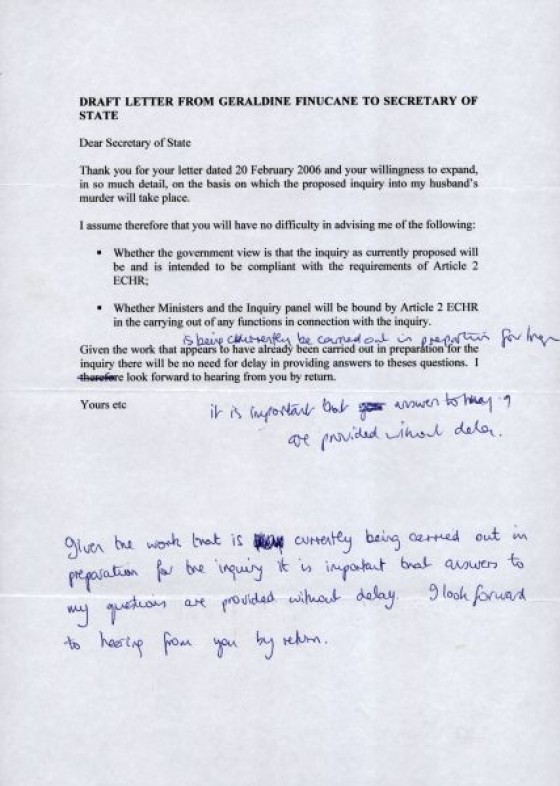 DRAFT LETTER FROM GERALDINE FINUCANE TO SECRETARY OF
STATE
Dear Secretary of State
Thank you for your letter dated 20 February 2006 and your willingness to expand,
in so much detail, on the basis on which the proposed inquiry into my husband's
murder will take place.
I assume therefore that you will have no difficulty in advising me of the following:
▪ Whether the government view is that the inquiry as currently proposed will
be and is intended to be compliant with the requirements of Article 2
ECHR;
▪ Whether Ministers and the Inquiry panel will be bound by Article 2 ECHR
in the carrying out of any functions in connection with the inquiry.
is being currently be carried out in preparation for
Given the work that appears to have already been carried out in preparation for the
inquiry there will be no need for delay in providing answers to theses questions. I
therefore look forward to hearing from you by return.
Yours etc
it is important that answers to my q
are provided without delay.
Given the work that is currently being carried out in
preparation for the inquiry it is important that answers to
my questions are provided without delay. I look forward
to hearing from you by return.